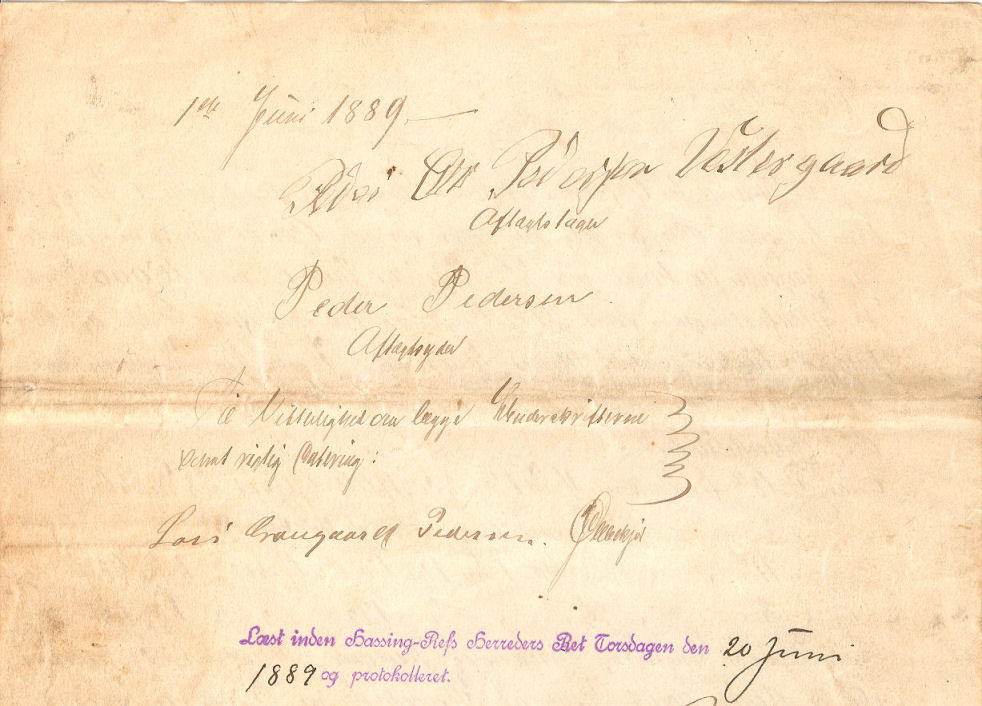 1ste Juni 1889.
Pedersen Vestergaard
Aftægtstager
Peder Pedersen
Aftægtsyder
Til Vitterlighed om begge Underskrifterne
samt rigtig Datering:
Lars Graugaard Pedersen.
Læst inden Hassing-Refs Herreders Ret Torsdagen den 20 Juni
1889 og protokolleret.